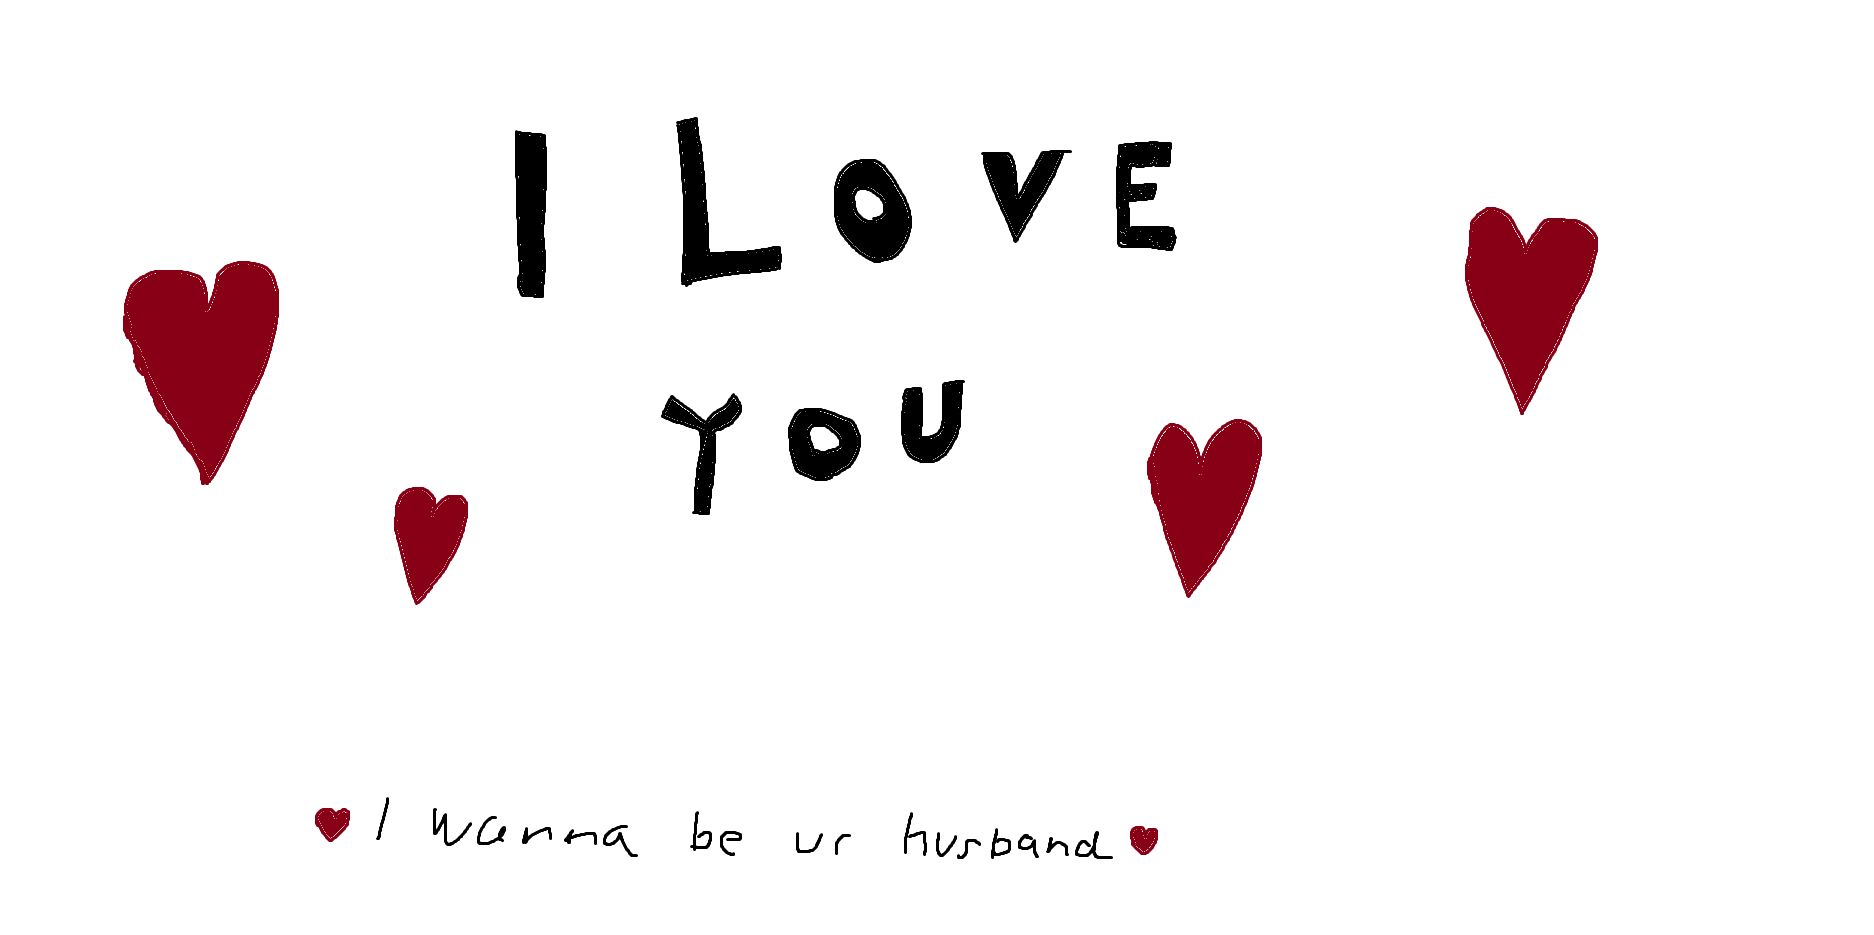 I LOVE
YOU
I wanna be ur husband